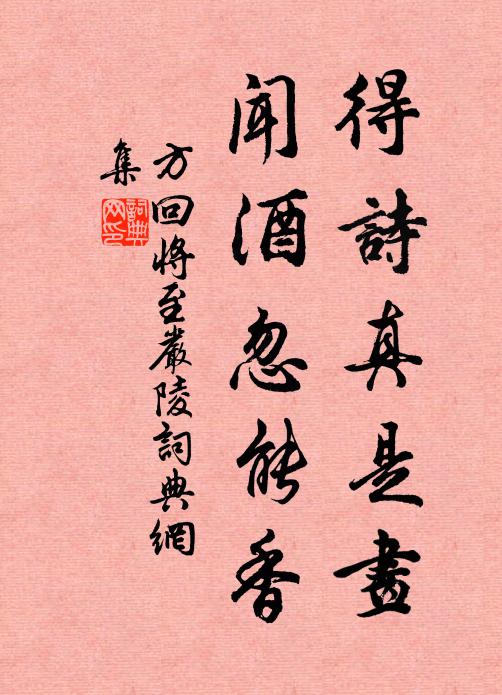 得詩真是畫
聞酒忽能香
方回將至嚴陵詞典網
集
詞典
网印